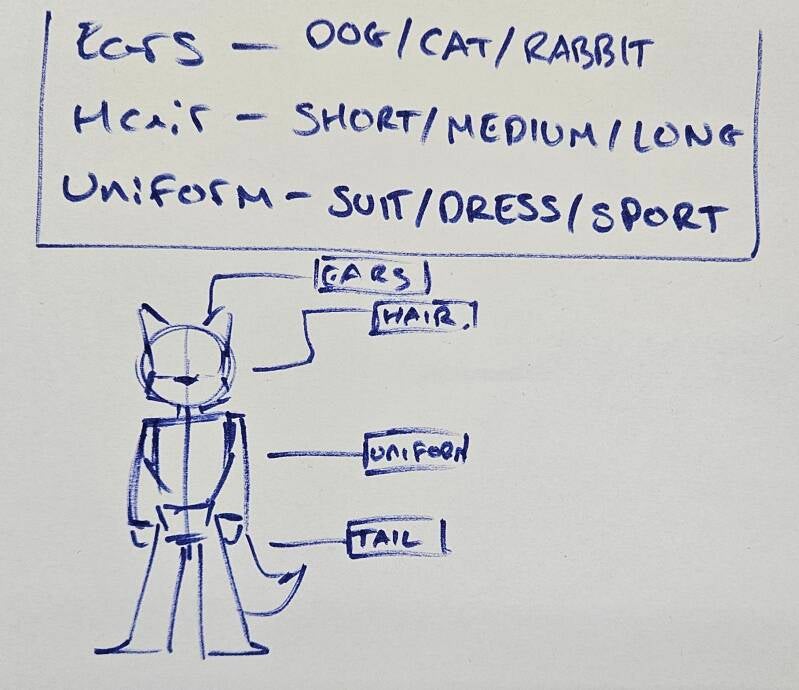 Ears — DOG/CAT/RABBIT
Hair – SHORT/MEDIUM/LONG
UniForm – SUIT/DRESS/SPORT
EARS
HAIR.
UNIFORM
TAIL